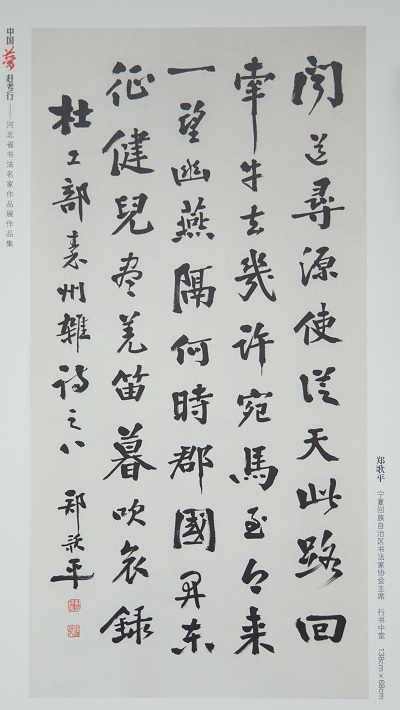 郑歌平 宁夏回族自治区书法家协会主席 行书中堂 138cm×68cm
聞道尋源使從天此路回
牽牛去幾許宛馬至今来
一望幽燕隔何時郡國開東
征健兒盡羌笛暮吹哀錄
杜工部秦州雜詩之八 鄭歌平
中国梦 赶考行——河北省书法名家作品展作品集